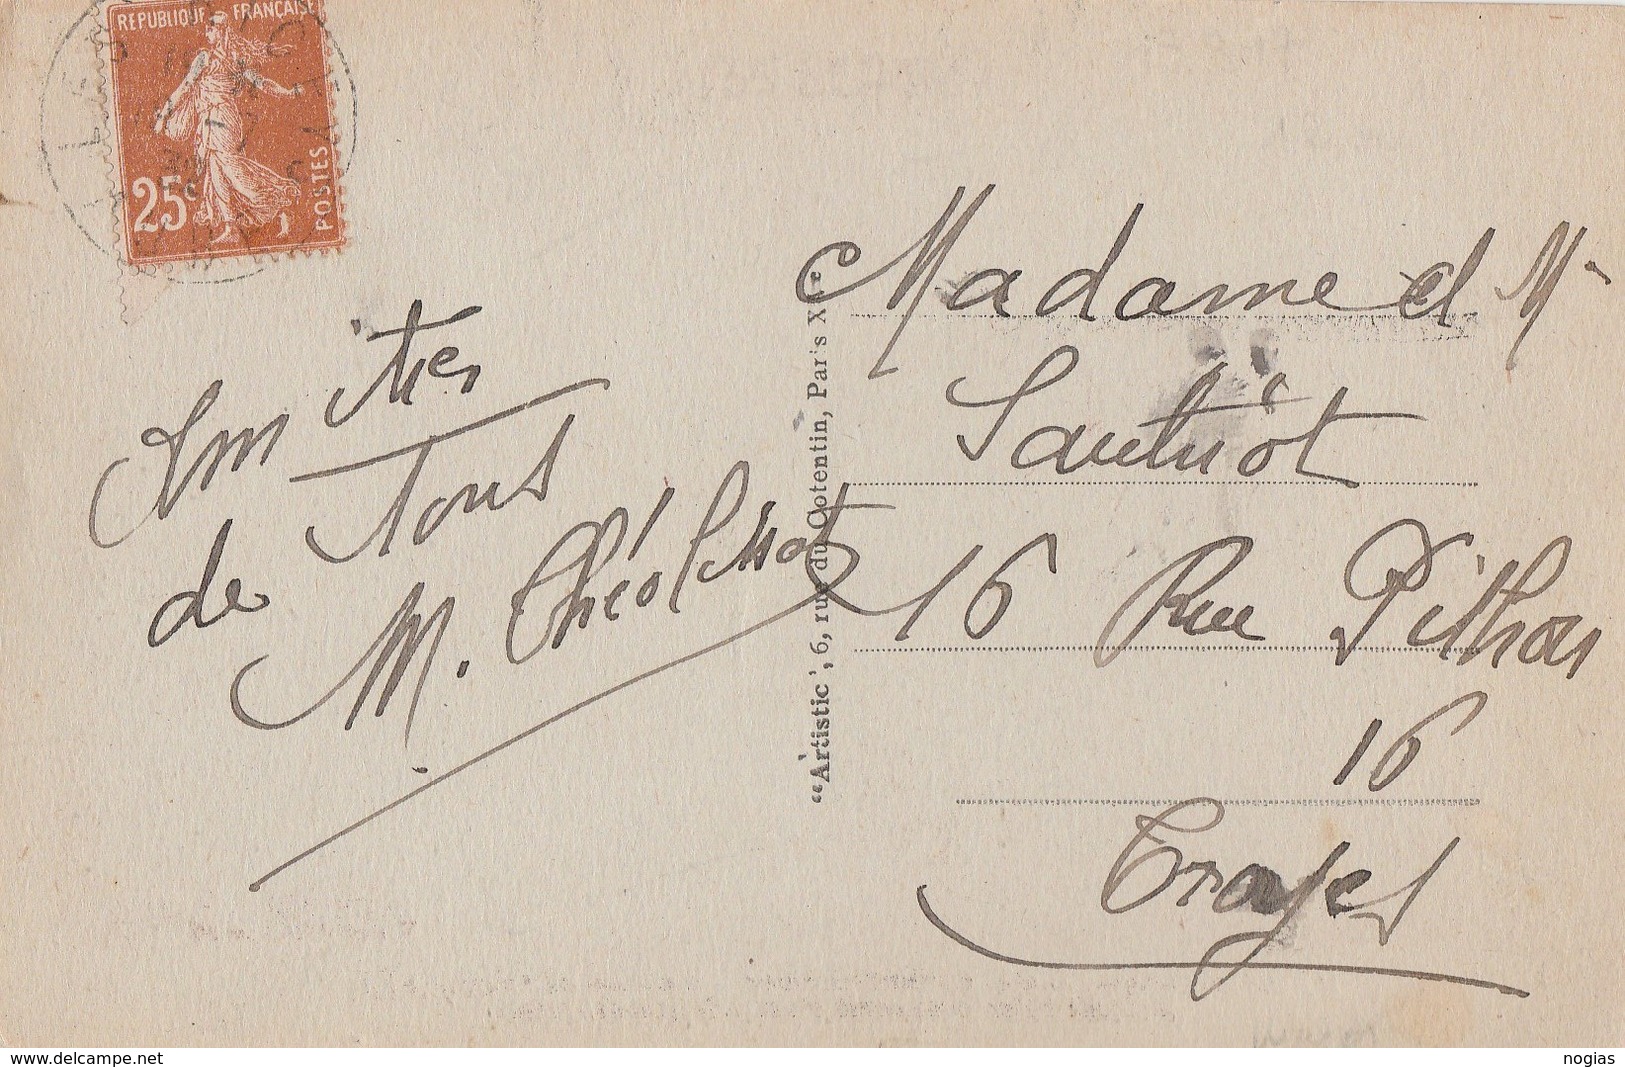 REPUBLIQUE FRANÇAISE
25c
POSTES
Amitiés
de Tous
M.
"Artistic", 6, rue du Cotentin, Paris XVe
Madame et Mr
Sautriot
16 Rue Pithou
16
Troyes
www.delcampe.net
nogias